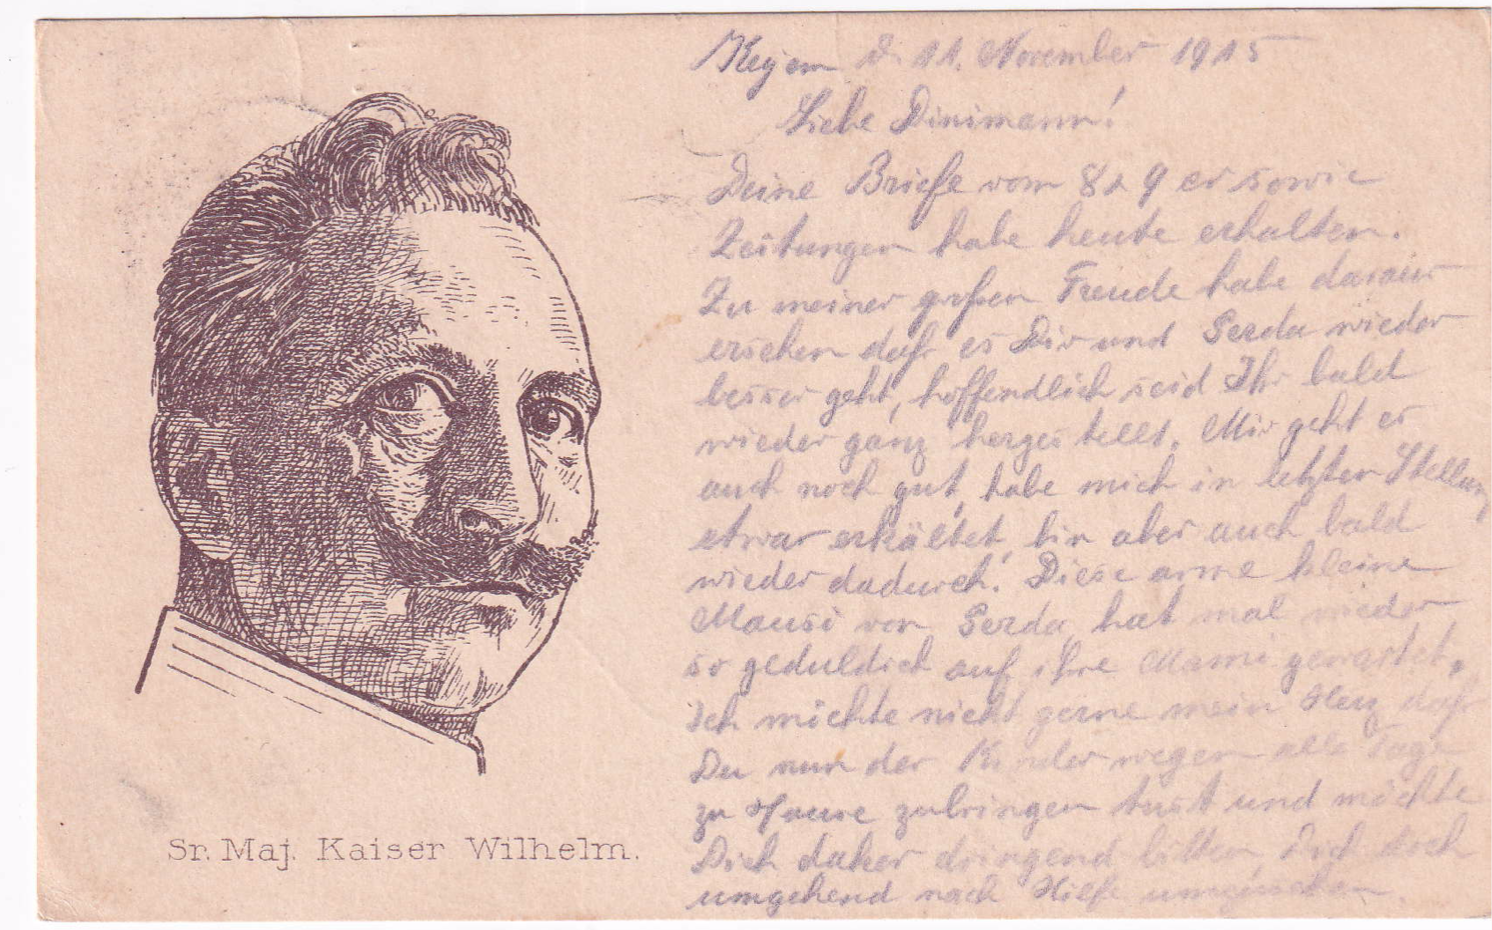 Keyem d. 11. November 1915
Liebe Dinimann!
Deine Briefe vom 8 & 9 er sowie
Zeitungen habe heute erhalten.
Zu meiner großen Freude habe daraus
ersehen daß es Dir und Gerda wieder
besser geht, hoffendlich seid Ihr bald
wieder ganz hergestellt. Mir geht es
auch noch gut, habe mich in letzter Stellung
etwas erkältet, bin aber auch bald
wieder dadurch. Diese arme kleine
Mausi von Gerda, hat mal wieder
so geduldich auf ihre Mami gewartet.
Ich möchte nicht gerne mein Herz daß
Du nun der Kinder wegen alle Tage
zu Hause zubringen tust und möchte
Dich daher dringend bitten Dich doch
umgehend nach Hilfe umzusehen.
Sr. Maj. Kaiser Wilhelm.